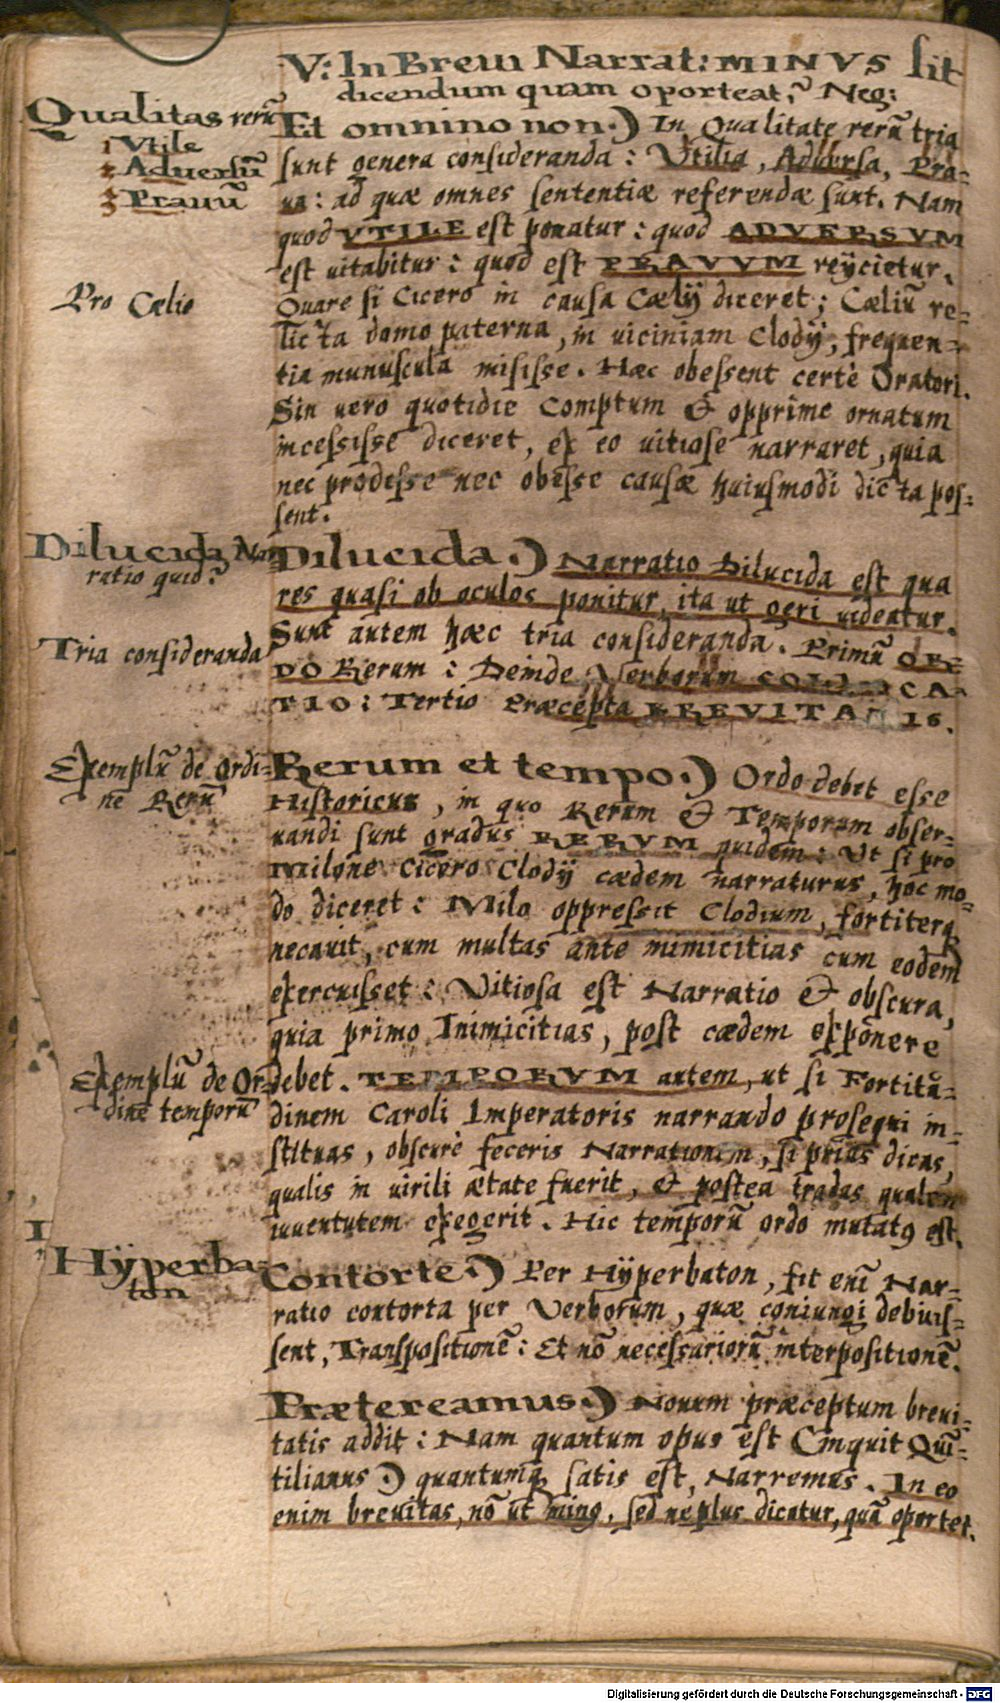 V: In Breui Narrat: MINVS sit
dicendum quam oporteat? Neg:
Qualitas rerū
1 Vtile
2 Aduersū
3 Prauū
Et omnino non.) In Qualitate rerū tria
sunt genera consideranda: Vtilia, Aduersa, Pra-
ua: ad quæ omnes sententiæ referendæ sunt. Nam
quod VTILE est ponatur: quod ADVERSVM
est uitabitur: quod est PRAVVM reijcietur.
Pro Cælio
Quare si Cicero in causa Cælij diceret; Cæliū re-
licta domo paterna, in uiciniam Clodij, frequen-
tia munuscula misisse. Hæc obessent certè Oratori.
Sin uero quotidie comptum & opprime ornatum
incessisse diceret, ex eo uitiose narraret, quia
nec prodesse nec obesse causæ huiusmodi dicta pos-
sent.
Dilucida Nar
ratio quid?
Dilucida.) Narratio Dilucida est qua
res quasi ob oculos ponitur, ita ut geri uideatur.
Tria consideranda
Sunt autem hæc tria consideranda. Primū OR-
DO Rerum: Deinde Verborum COLLOCA-
TIO: Tertio Præcepta BREVITATIS.
Exemplū de Ordi-
ne Rerū
Rerum et tempo.) Ordo debet esse
Historicus, in quo Rerum & Temporum obser-
uandi sunt gradus RERVM quidem: Vt si pro
Milone Cicero Clodij cædem narraturus, hoc mo-
do diceret: Milo oppressit Clodium, fortiterq
necauit, cum multas ante inimicitias cum eodem
exercuisset: Vitiosa est Narratio & obscura,
quia primo Inimicitias, post cædem exponere
Exemplū de Or-
dine temporū
debet. TEMPORVM autem, ut si Fortitu-
dinem Caroli Imperatoris narrando prosequi in-
stituas, obscurè feceris Narrationem, si prius dicas,
qualis in uirili ætate fuerit, & postea tradas qualem
iuuentutem exegerit. Hic temporū ordo mutatꝰ est.
1
Hÿperba-
ton
Contorte.) Per Hÿperbaton, fit enī Nar-
ratio contorta per Verborum, quæ coniungi debuis-
sent, Transpositionē: Et nō necessariorū interpositionē.
Prætereamus.) Nouum præceptum breui-
tatis addit: Nam quantum opus est (inquit Qui-
tilianus) quantumq satis est, Narremus. In eo
enim breuitas, nō ut minꝰ, sed ne plus dicatur, quā oportet.
Digitalisierung gefördert durch die Deutsche Forschungsgemeinschaft - DFG